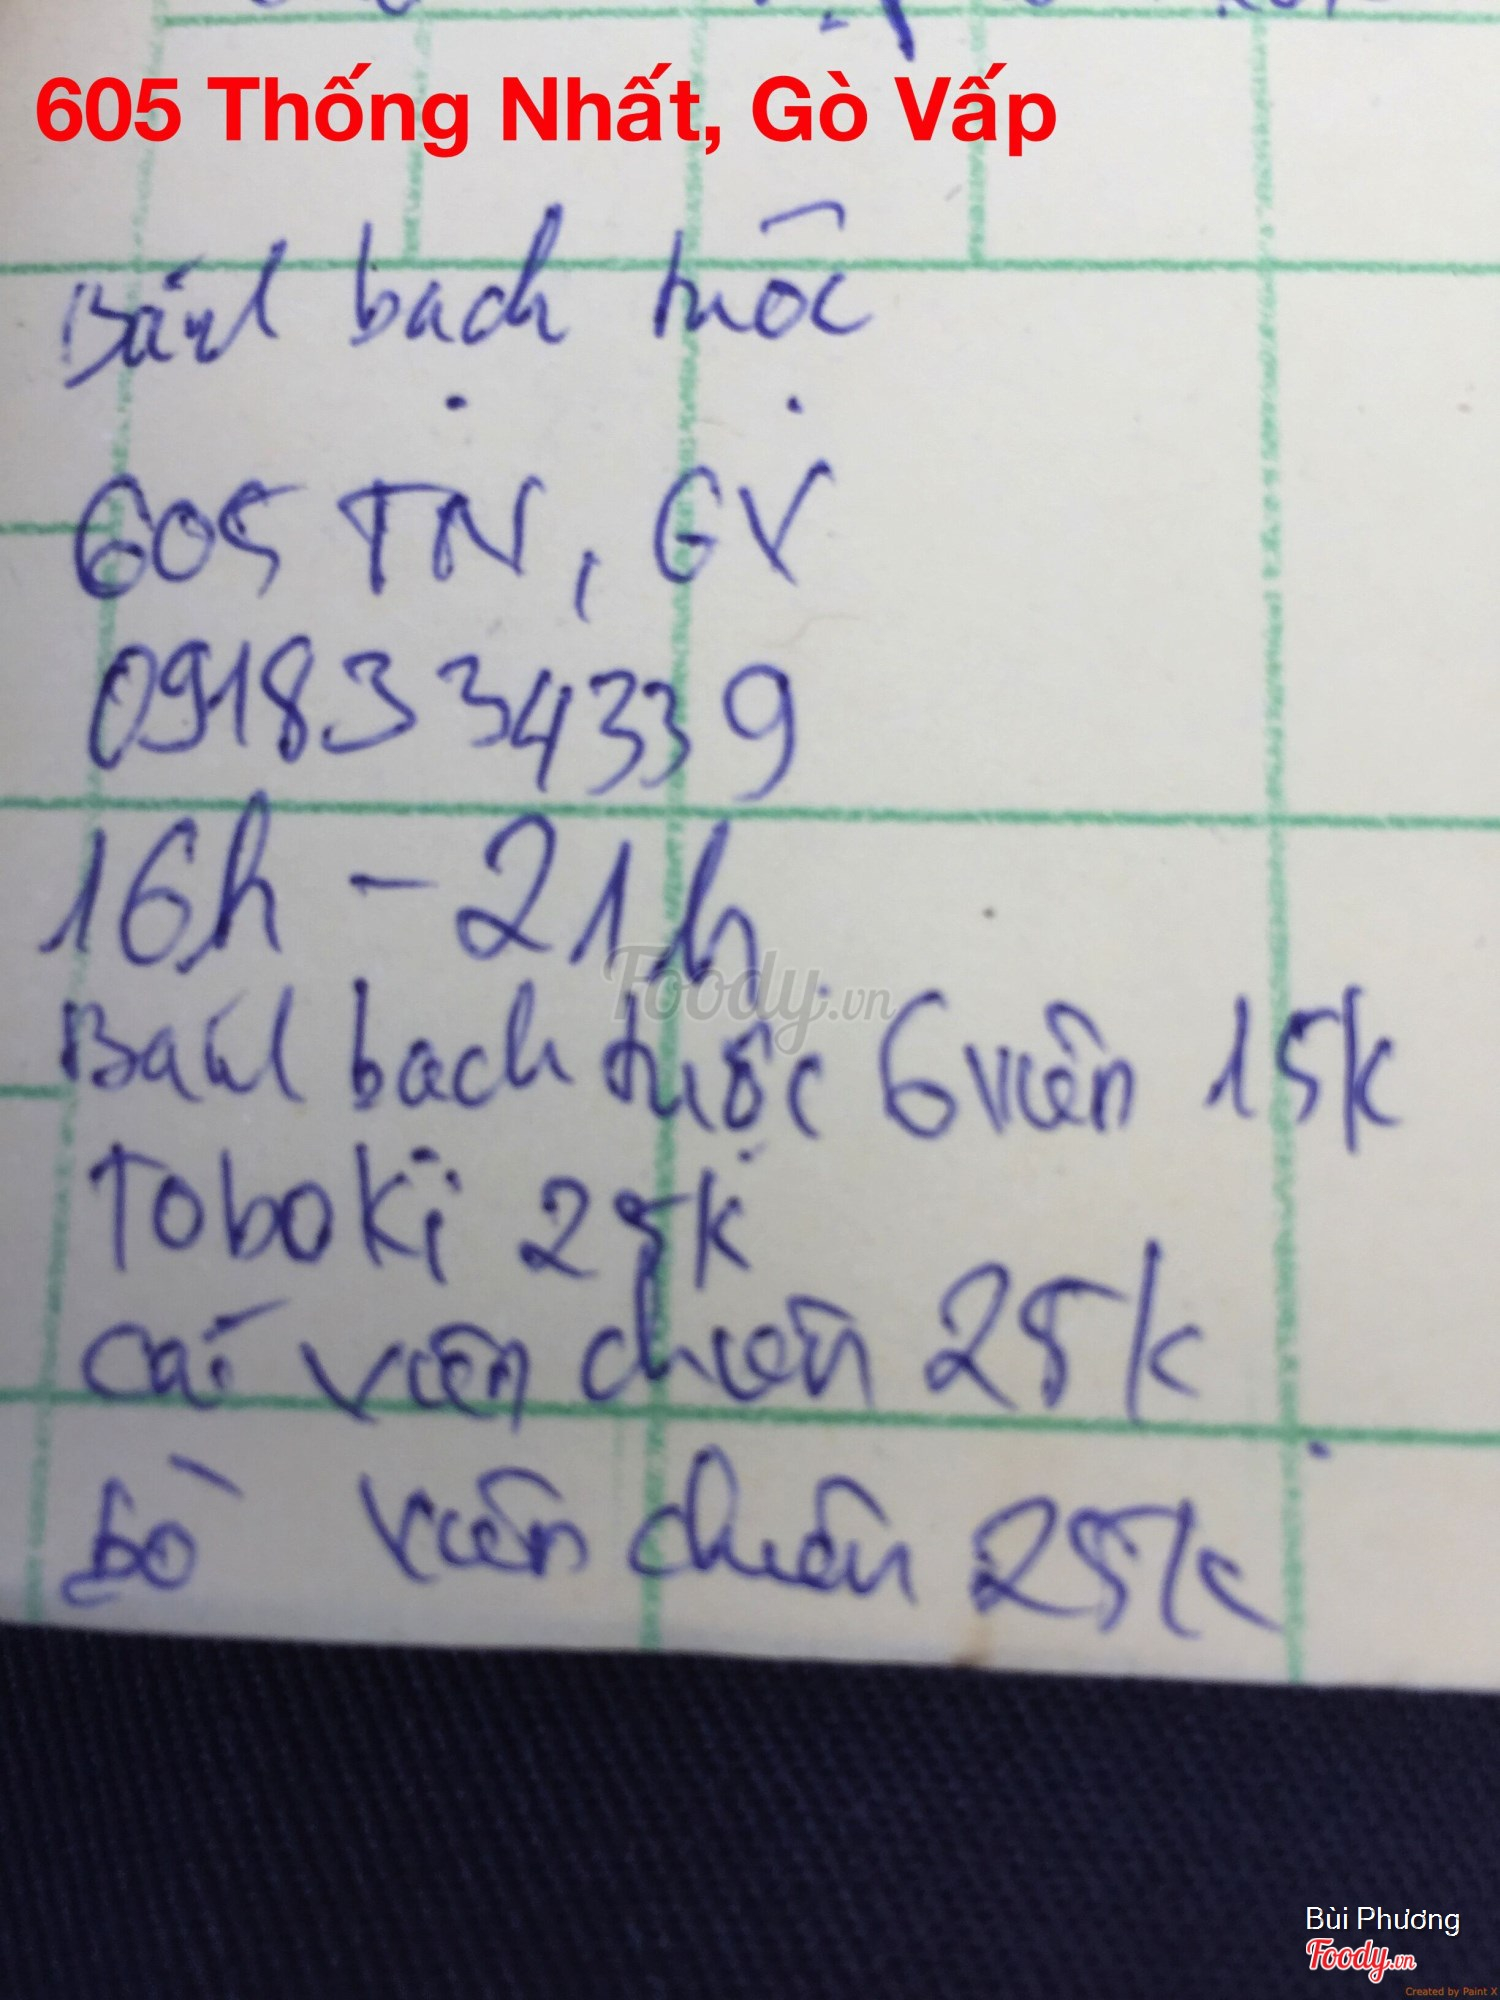 605 Thống Nhất, Gò Vấp
Bánh bạch tuộc
605 TN, GV
0918334339
16h - 21h
Foody.vn
Bánh bạch tuộc 6 viên 15k
Toboki 25k
Cá viên chiên 25k
bò viên chiên 25k
Bùi Phương
Foody.vn
Created by Paint X